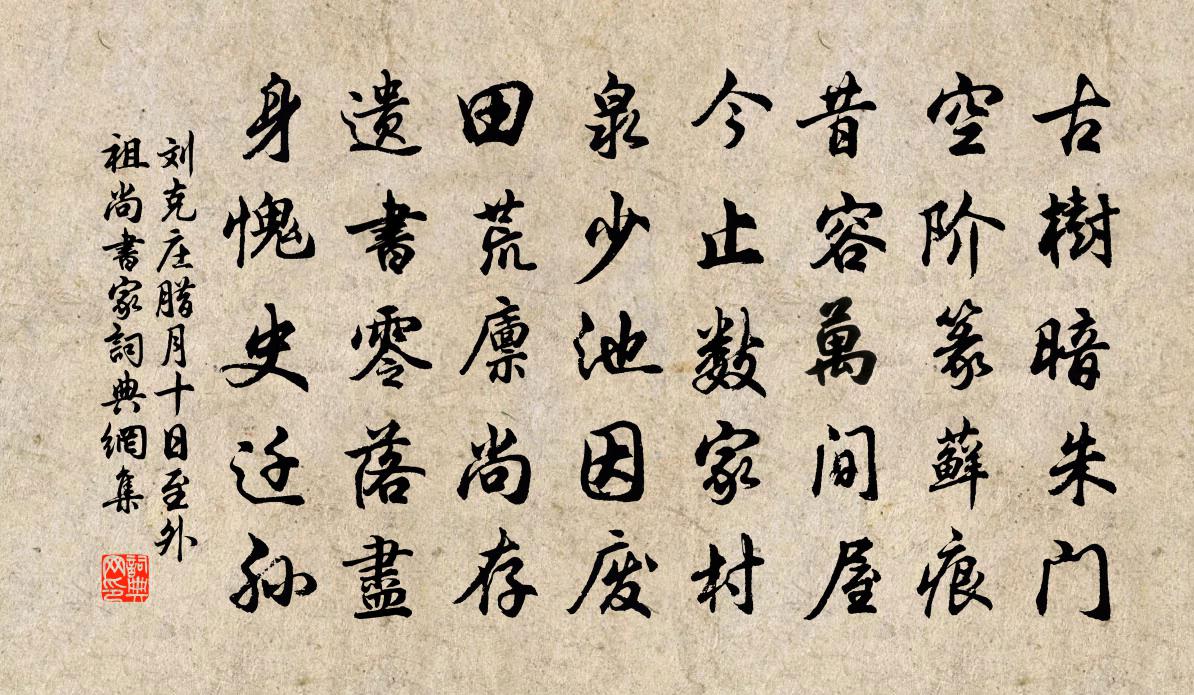 古樹暗朱门
空阶篆蘚痕
昔容萬间屋
今止数家村
泉少池因废
田荒廪尚存
遗書零落盡
身愧史迁孙
刘克庄腊月十日至外
祖尚書家詞典網集
詞典网印